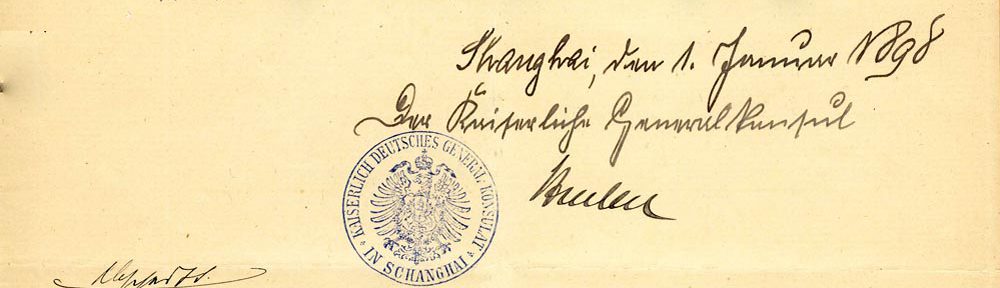 Shanghai, den 1. Januar 1898
Der Kaiserliche Generalkonsul
KAISERLICH DEUTSCHES GENERAL-KONSULAT
IN SCHANGHAI